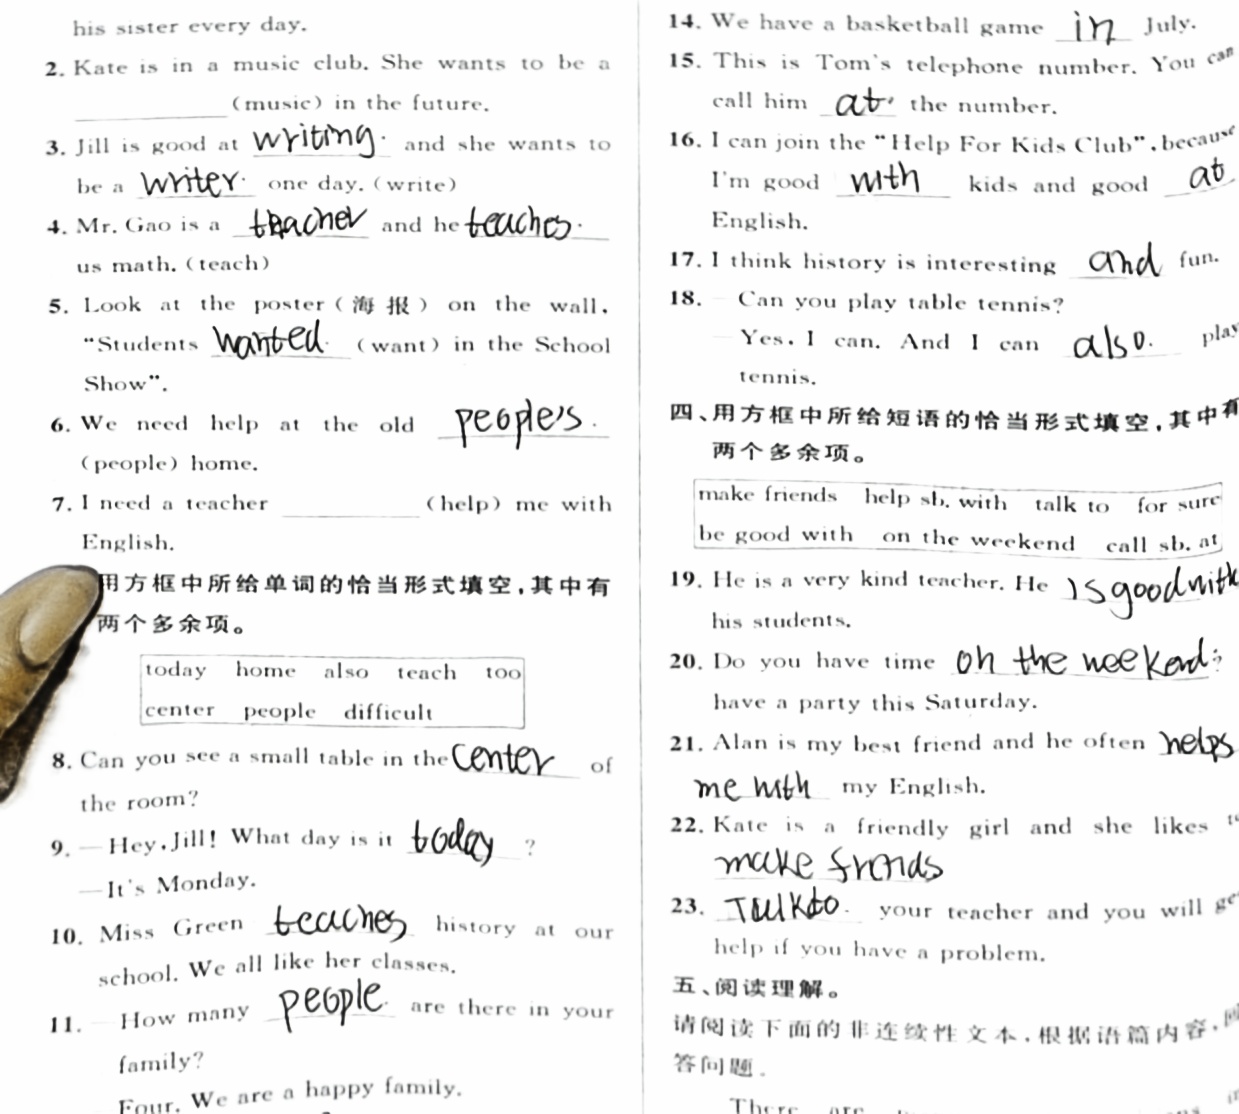 his sister every day.
2. Kate is in a music club. She wants to be a
__________ (music) in the future.
3. Jill is good at writing. and she wants to
be a writer. one day. (write)
4. Mr. Gao is a teacher and he teaches.
us math. (teach)
5. Look at the poster(海报) on the wall,
“Students wanted. (want) in the School
Show”.
6. We need help at the old people's.
(people) home.
7. I need a teacher __________ (help) me with
English.
用方框中所给单词的恰当形式填空,其中有
两个多余项。
today home also teach too
center people difficult
8. Can you see a small table in the center of
the room?
9. —Hey, Jill! What day is it today ?
—It's Monday.
10. Miss Green teaches history at our
school. We all like her classes.
11. —How many people. are there in your
family?
Four. We are a happy family.
14. We have a basketball game in July.
15. This is Tom's telephone number. You can
call him at. the number.
16. I can join the “Help For Kids Club”, because
I'm good with kids and good at
English.
17. I think history is interesting and fun.
18. — Can you play table tennis?
— Yes, I can. And I can also. play
tennis.
四、用方框中所给短语的恰当形式填空,其中有
两个多余项。
make friends help sb. with talk to for sure
be good with on the weekend call sb. at
19. He is a very kind teacher. He is good with
his students.
20. Do you have time on the weekend? 
have a party this Saturday.
21. Alan is my best friend and he often helps
me with my English.
22. Kate is a friendly girl and she likes
make friends
23. Talk to. your teacher and you will
help if you have a problem.
五、阅读理解。
请阅读下面的非连续性文本,根据语篇内容,
答问题.
There are